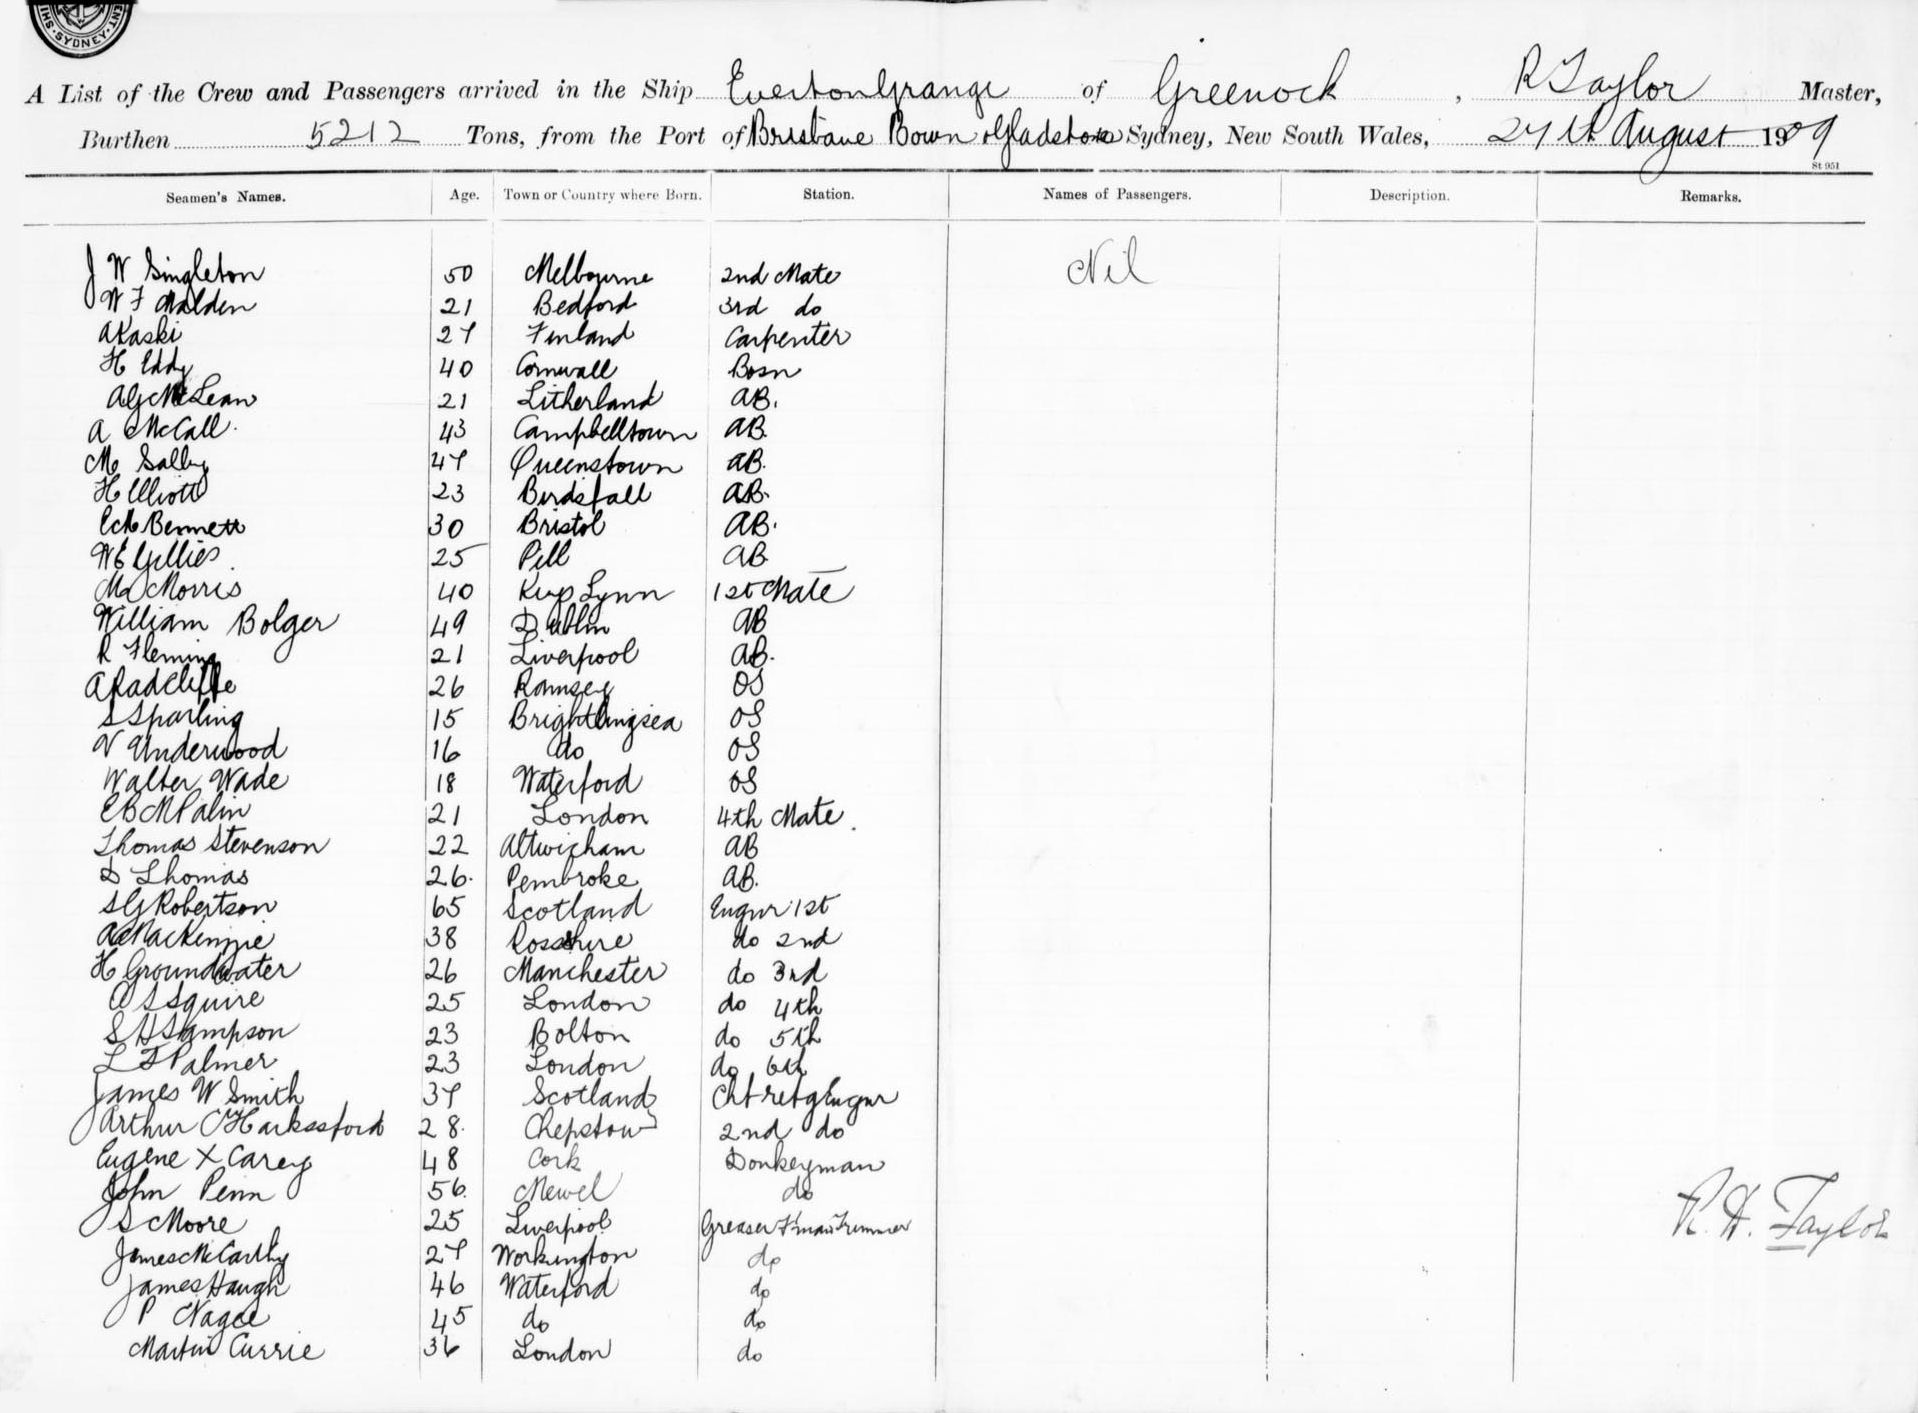 SYDNEY
A List of the Crew and Passengers arrived in the Ship Everton Grange of Greenock, R Taylor Master,
Burthen 5212 Tons, from the Port of Brisbane Bowen & Gladstone Sydney, New South Wales, 27th August 1909
St 951
Seamen's Names. Age. Town or Country where Born. Station. Names of Passengers. Description. Remarks.
J W Singleton 50 Melbourne 2nd Mate Nil
W F Malden 21 Bedford 3rd do
A Kaski 27 Finland Carpenter
H Eddy 40 Cornwall Bosn
A G McLean 21 Litherland AB.
A McCall. 43 Campbelltown AB.
M Salby 47 Queenstown AB.
H Elliott 23 Birdsfall AB.
E M Bennett 30 Bristol AB.
W E Gillies. 25 Pill AB.
Morris 40 Kings Lynn 1st Mate
William Bolger 49 Dublin AB
R Fleming 21 Liverpool AB.
A Radcliffe 26 Ramsey OS
S Sparling 15 Brightlingsea OS
V Underwood 16 do OS
Walter Wade 18 Waterford OS
E B M Palin 21 London 4th Mate.
Thomas Stevenson 22 Altwicham AB
D Thomas 26. Pembroke AB.
S G Robertson 65 Scotland Engnr 1st
MacKenzie 38 Rossshire do 2nd
H Groundwater 26 Manchester do 3rd
A S Squire 25 London do 4th
S H Sampson 23 Bolton do 5th
L F Palmer 23 London do 6th
James W Smith 37 Scotland Chf refg Engnr
Arthur C Harkssford 28. Chepstow 2nd do
Eugene X Carey 48 Cork Donkeyman
John Penn 56. Newel do
S Moore 25 Liverpool Greaser F'man Trimmer
James McCarthy 27 Workington do
James Haugh 46 Waterford do
P Nagle 45 do do
Martin Currie 36 London do
R. H. Taylor